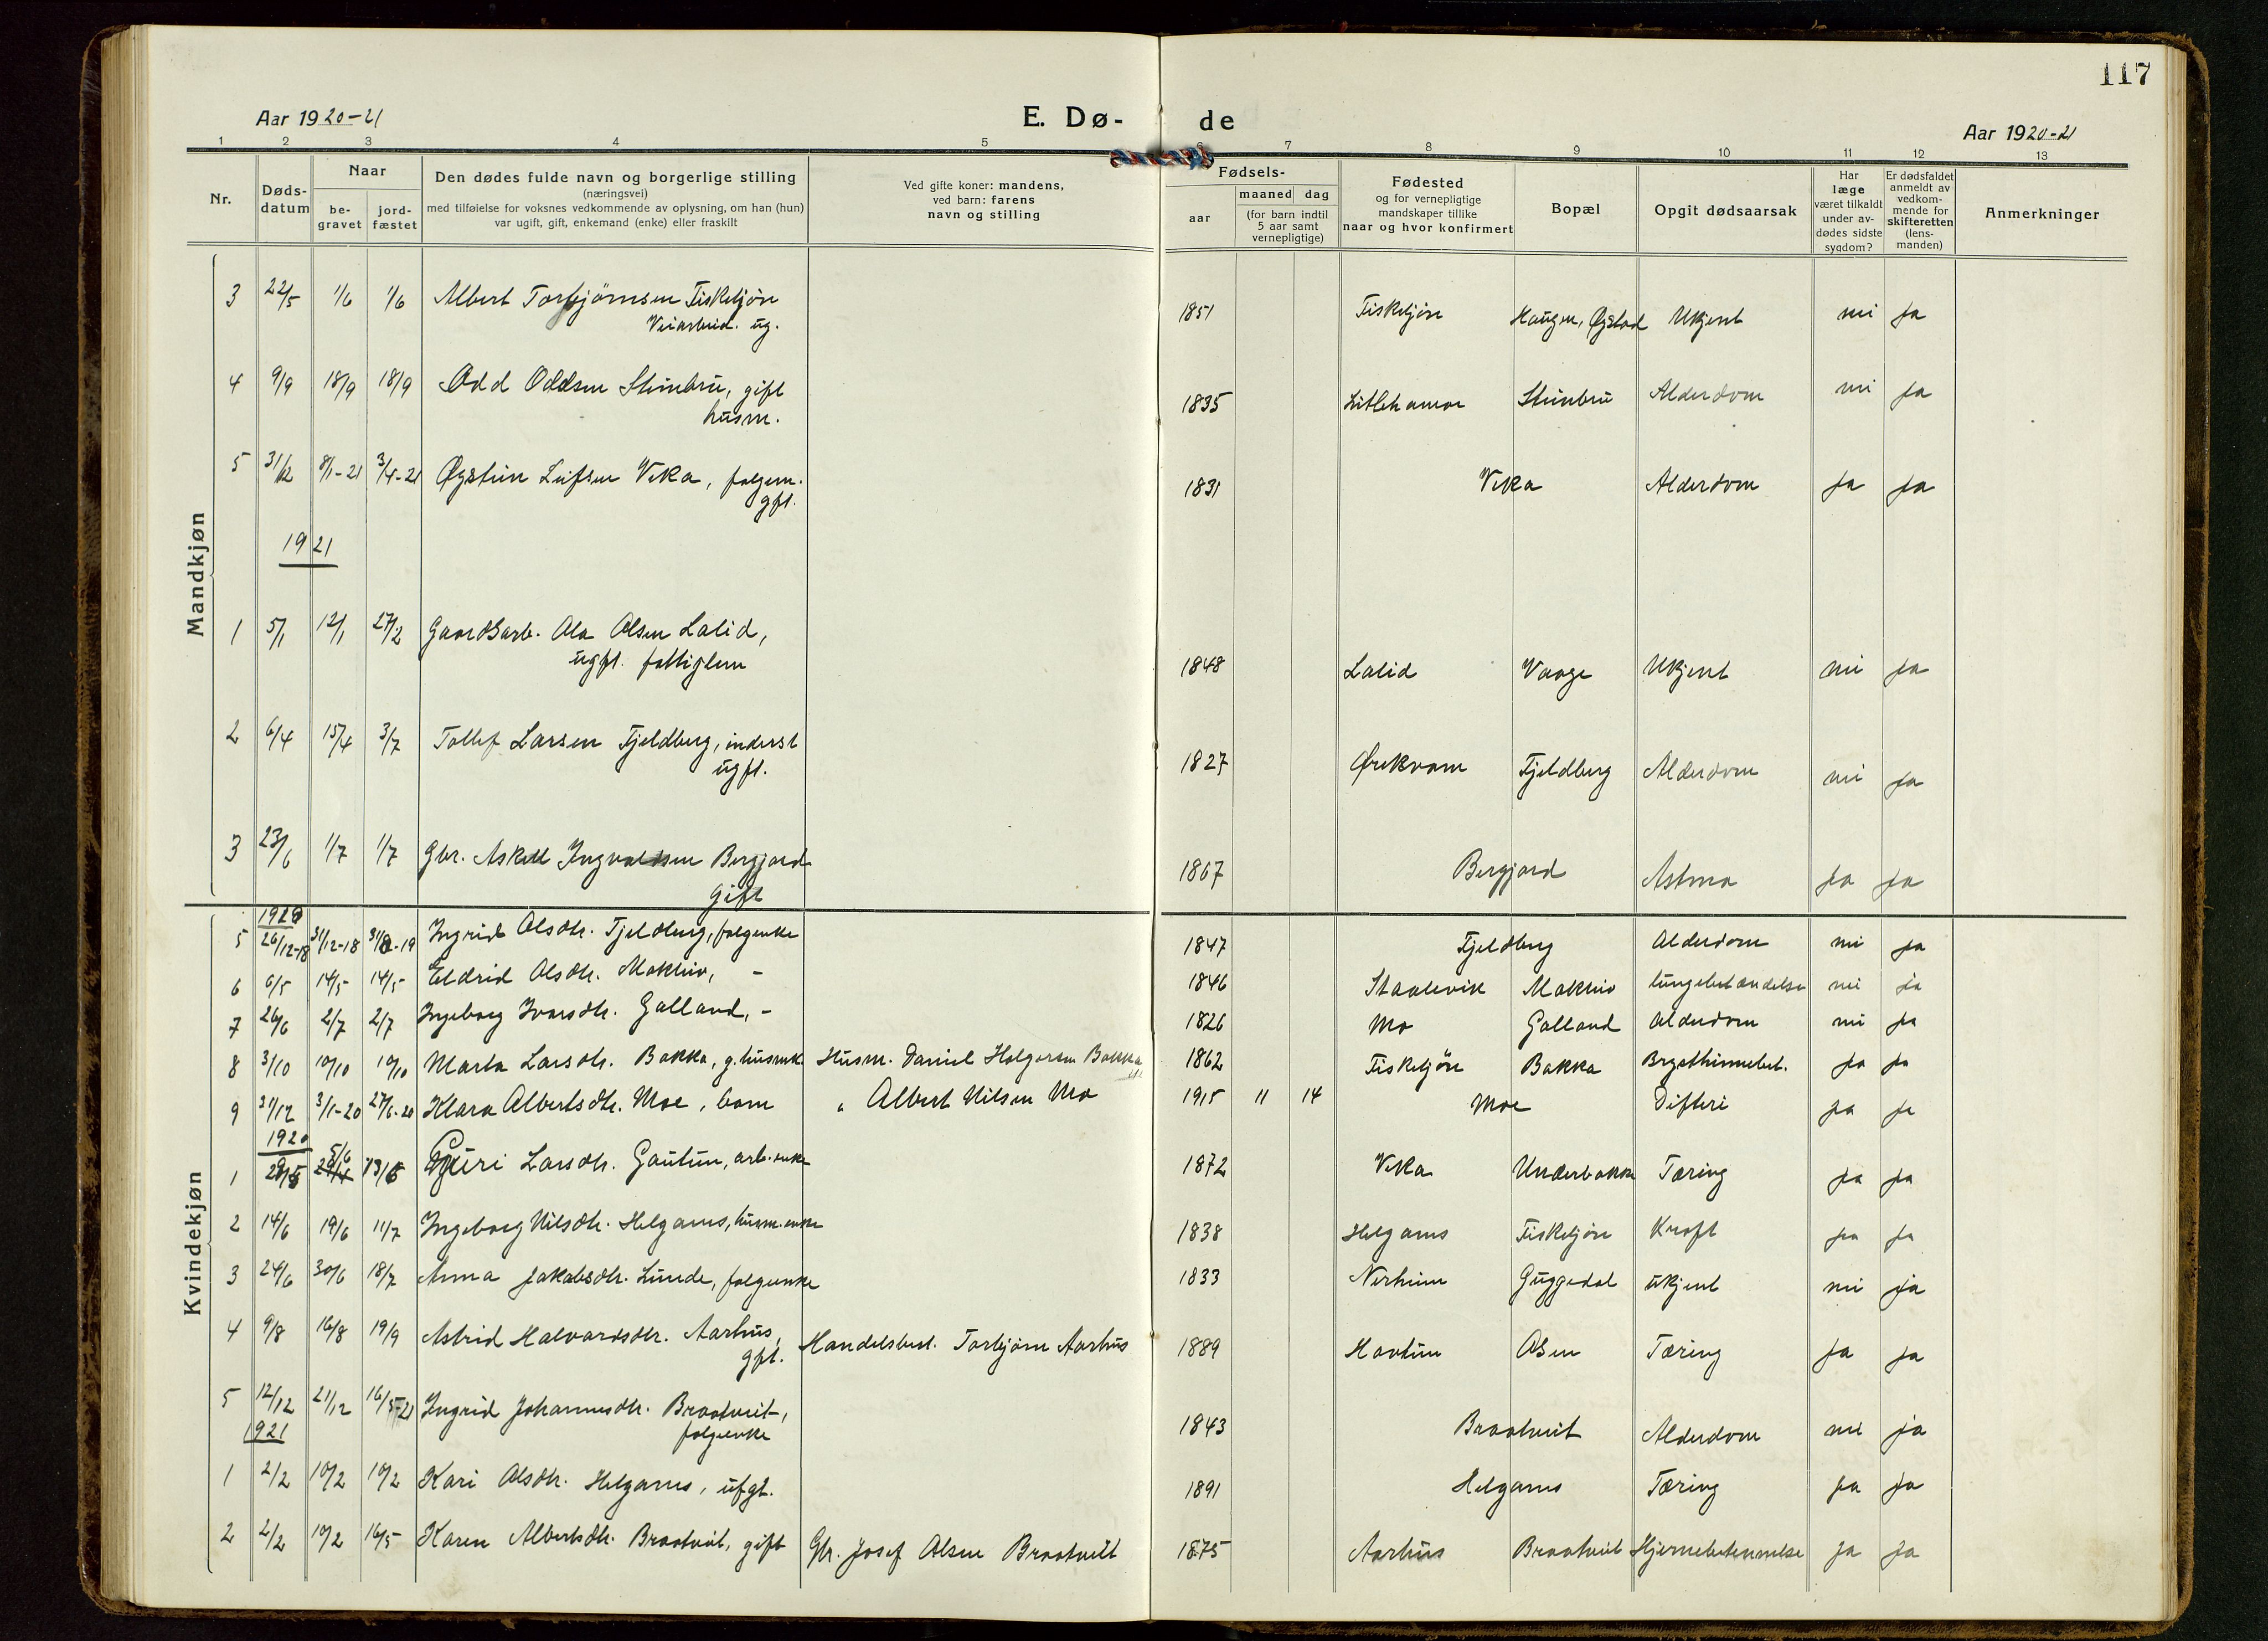 117
Aar 1920-21
E. Dø- de
Aar 1920-21
1 2 3 4 5 6 7 8 9 10 11 12 13
Nr.
Døds-
datum
Naar
be-
gravet
jord-
fæstet
Den dødes fulde navn og borgerlige stilling
(næringsvei)
med tilføielse for voksnes vedkommende av oplysning, om han (hun)
var ugift, gift, enkemand (enke) eller fraskilt
Ved gifte koner: mandens,
ved barn: farens
navn og stilling
Fødsels-
aar
maaned dag
(for barn indtil
5 aar samt
vernepligtige)
Fødested
og for vernepligtige
mandskaper tillike
naar og hvor konfirmert
Bopæl
Opgit dødsaarsak
Har
læge
været tilkaldt
under av-
dødes sidste
sygdom?
Er dødsfaldet
anmeldt av
vedkom-
mende for
skifteretten
(lens-
manden)
Anmerkninger
Mandkjøn
3 22/5 1/6 1/6 Albert Torbjørnsen Fisketjøn 1851 Fisketjøn Haugen, Øgstad Ukjent nei ja
Veiarbeid. ug.
4 9/9 18/9 18/9 Odd Oddsen Steinbru, gift 1835 Litlehamar Steinbru Alderdom nei ja
husm.
5 31/12 8/1-21 3/4-21 Øystein Leifsen Veka, folgem. 1831 Veka Alderdom ja ja
gft.
1921
1 5/1 12/1 27/2 Gaardsarb. Ola Olsen Lalid, 1848 Lalid Vaage Ukjent nei ja
ugft. fattiglem
2 6/4 15/4 3/7 Tollef Larsen Fjeldberg, inderst 1827 Ørekvam Fjeldberg Alderdom nei ja
ugft.
3 23/6 1/7 1/7 Gbr. Askell Ingvaldsen Bergjord 1867 Bergjord Astma ja ja
gift
Kvindekjøn
5 26/12-18 31/12-18 Ingrid Olsdtr. Fjeldberg, folgeenke 1847 Fjeldberg Alderdom nei ja
6 6/5 14/5 14/5 Eldrid Olsdtr. Mokleiv, - 1846 Staalevik Mokleiv lungebetændelse nei ja
7 26/6 2/7 2/7 Ingeborg Ivarsdtr. Galland, - 1826 Mo Galland Alderdom nei ja
8 3/10 10/10 10/10 Marta Larsdtr. Bakka, g. husmk. Husm. Daniel Holgersen Bakka 1862 Fisketjøn Bakka Brysthinnebet. ja ja
9 31/12 3/1-20 27/6-20 Klara Albertsdtr. Moe, barn " Albert Nilsen Mo 1915 11 14 Moe Difteri ja ja
1920
1 5/6 13/6 Guri Larsdtr. Gautun, arb. enke 1872 Veka Underbakke Tæring ja ja
2 14/6 19/6 11/7 Ingeborg Nilsdtr. Helganes, husm. enke 1838 Helganes Fisketjøn Kræft ja ja
3 24/6 30/6 18/7 Anna Jakobsdtr. Lunde, folgeenke 1833 Nerheim Guggedal ukjent nei ja
4 9/8 16/8 19/9 Astrid Halvardsdtr. Aarhus, Handelsbest. Torbjørn Aarhus 1889 Havtun Osen Tæring ja ja
gft.
5 12/12 21/12 16/5-21 Ingrid Johannesdtr. Braatveit, 1843 Braatveit Alderdom nei ja
folgeenke
1921
1 2/2 10/2 10/2 Kari Olsdtr. Helganes, ugft. 1891 Helganes Tæring ja ja
2 2/2 10/2 16/5 Karen Albertsdtr. Braatveit, gift Gbr. Josef Olsen Braatveit 1875 Aarhus Braatveit Hjernebetennelse ja ja